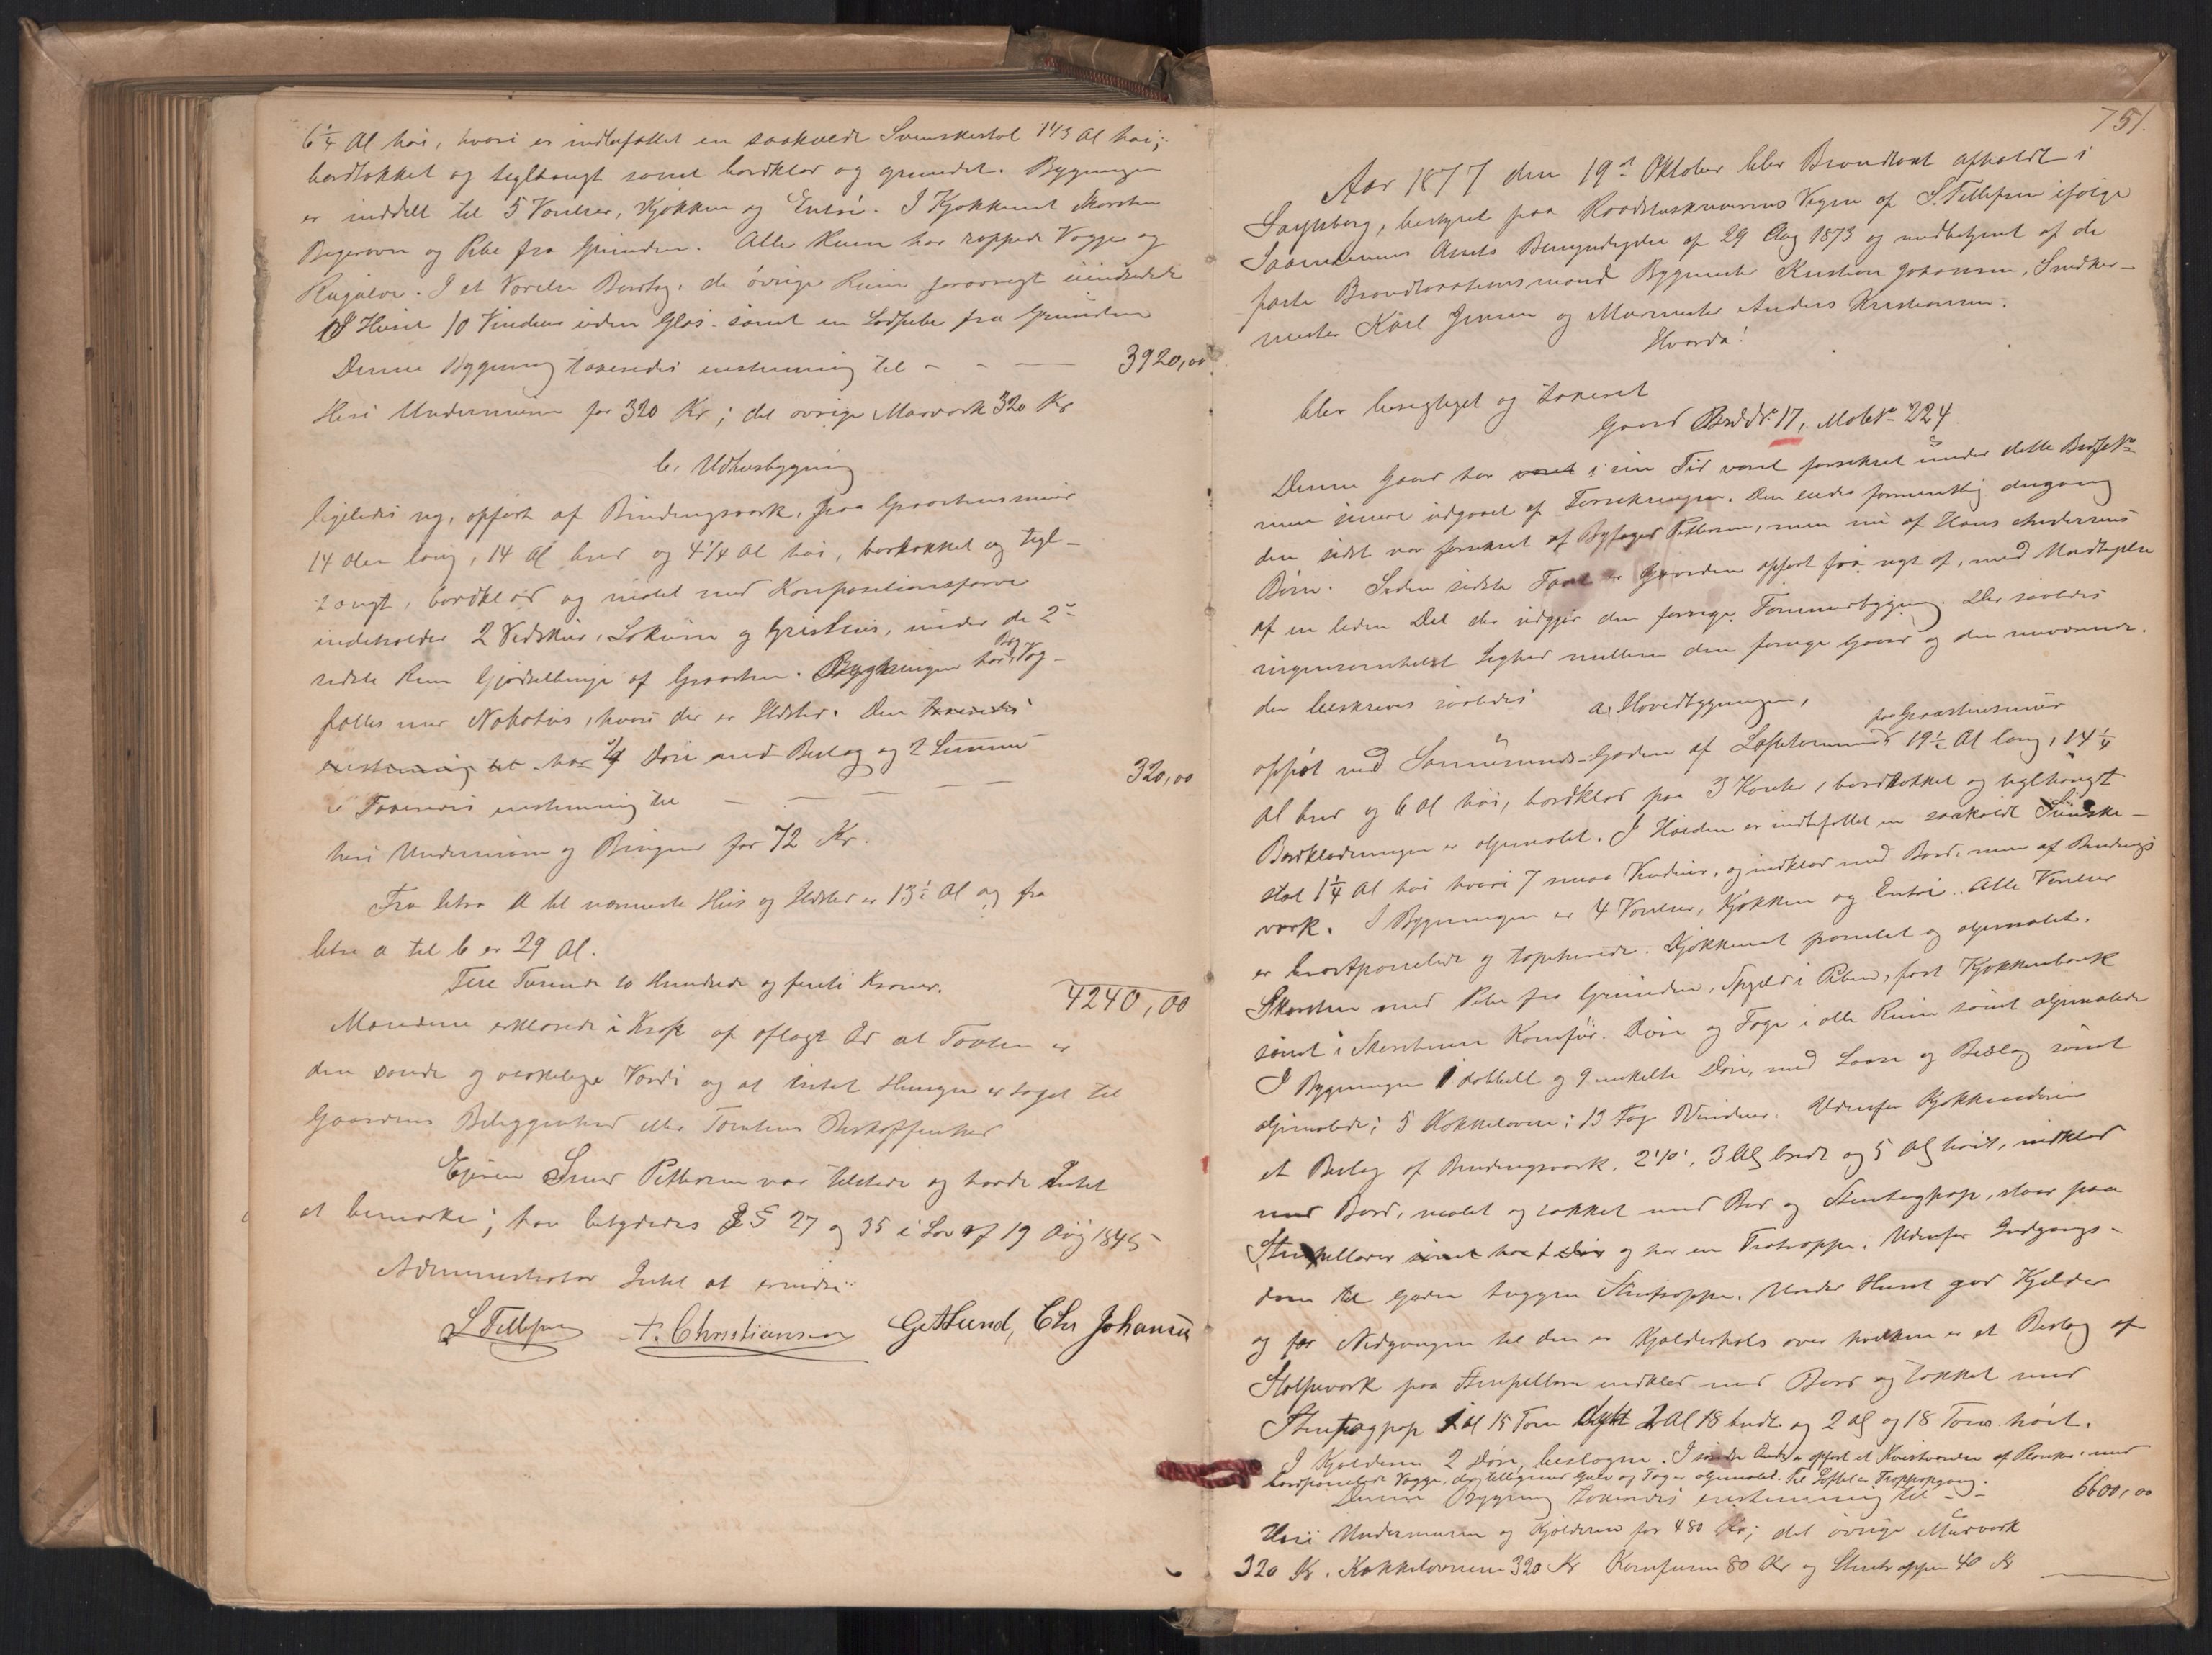 6 1/4 Al høi, hvori er indbefattet en saakaldt Svenskestol 1 1/3 Al høi;
bordtækket og teglhængt samt bordklæd og grundet. Bygningen
er inddelt til 5 Værelser, Kjøkken og Entré. I Kjøkkenet Skorsten
Bagerovn og Pibe fra Grunden. Alle Rum har rappede Vægge og
I et Værelse Beslag, de øvrige Rum forøvrigt uindredede
I Huset 10 Vinduer uden Glas samt en Lodpibe fra Grunden
Denne Bygning taxeredes enstemmig til - - — 3920,00
Heri Undermuren for 320 Kr; det øvrige Murværk 320 Kr
b, Udhusbygning
ligeledes ny, opført af Bindingsværk, paa Graastensmur
14 Alen lang, 14 Al bred og 4 1/4 Al høi, bordtækket og tegl-
hængt, bordklæd og malet med Kompositionsfarve
indeholder 2 Vedskur, Lokum og Grisehus, under de 2de
sidste Rum Gjødselbinge af Graasten. Bygningen har Tag-
fælles med Nabohus, hvori der er Ildsted. Den taxeredes
enstemmig til har 4 Døre med Beslag og 2 Lemme
Taxeredes enstemmig til — — — — 320,00
heri Undermuren og Bingen for 72 Kr.
Fra litra a til nærmeste Hus og Ildsted er 13 1/2 Al og fra
litra a til b er 29 Al.
Fire Tusinde to Hundrede og firti Kroner. 4240,00
Mændene erklærede i Kraft af aflagt Ed at Taxten er
den sande og virkelige Værdi og at intet Hensyn er taget til
Gaardens Beliggenhed eller Tomtens Beskaffenhed
Eieren Pettersen var tilstede og havde Intet
at bemærke; han betydedes §§ 27 og 35 i Lov af 19 Aug 1845
Administrator Intet at erindre
S Tellefsen A. Christiansen G. A. Lund, Chr Johansen
751.
Aar 1877 den 19de Oktober blev Brandtaxt afholdt i
Sarpsborg, bestyret paa Raadstuskriverens Vegne af S. Tellefsen ifølge
Smaalenenes Amts Bemyndigelse af 29 Aug 1873 og medbetjent af de
faste Brandtaxationsmænd Bygmester Kristian Johansen, Snedker-
mester Karl Jensen og Murmester Anders Kristiansen.
Hvorda!
blev besigtiget og taxeret
Gaard Br.d. No 17, Matr No 224
Denne Gaard har været i sin Tid været forsikret under dette Brdfs No
men senere udgaaet af Forsikringen. Den eiedes formentlig dengang
den sidst var forsikret af Byfoged Petterson, men nu af Hans Andersens
Børn. Siden sidste Taxt er Gaarden opført fra nyt af, med Undtagelse
af en liden Del der udgjør den forrige Tømmerbygning. Der saaledes
ingensomhelst Lighed mellem den forrige Gaard og den nuværende.
der beskrives saaledes a, Hovedbygningen,
opført ved Sannesunds-Gaden af Laftetømmer paa Graastensmur 19 1/2 Al lang, 14 1/4
Al bred og 6 Al høi, bordklæd paa 3 Kanter, bordtækket og teglhængt
Bordklædningen er oljemalet. I Høiden er indbefattet en saakaldt Svenske-
stol 1 1/4 Al høi hvori 7 smaa Vinduer, og indklæd med Bord, men af Bindings
værk. I Bygningen er 4 Værelser, Kjøkken og Entré. Alle Værelser
er brystpanelede og tapetserede. Kjøkkenet panelet og oljemalet.
Skorsten med Pibe fra Grunden, Spjæld i Piben, fast Kjøkkenbænk
samt i Skorstenen Komfur. Døre og Tage i alle Rum samt oljemalede
I Bygningen 1 dobbelt og 9 enkelte Døre, med Laase og Beslag samt
oljemalede; 5 Kakkelovne; 13 Fag Vinduer. Udenfor Kjøkkendøren
et Bislag af Bindingsværk, 2'10", 3 Al bredt og 5 Al høit, indklæd
med Bord, malet og tækket med Bor og Stentagpap, staar paa
Stenpillarer samt har 1 Dør og har en Trætrappe. Udenfor Indgangs-
døren til Gaden huggen Stentrappe. Under Huset god Kjelder
og for Nedgangen til den er Kjælderhals over hvilken er et Bislag af
Stolpeværk paa Stenpillare indklæd med Bord og tækket med
Stentagpap 1 Al 15 Tom dybt 2 Al 18 bredt og 2 Al og 18 Tom. høit.
I Kjælderen 2 Døre, beslagne. I søndre Ende er opført et Kvistværelse af Planke med
bordpanelede Vægge, dog tilligemed Gulv og Tag er oljemalet. Til Loftet er Trappopgang.
Denne Bygning taxeredes enstemmig til - - 6600,00
Heri Undermuren og Kjælderen for 480 Kr; det øvrige Murværk
320 Kr. Kakkelovnene 320 Kr Komfuren 80 Kr og Stentrappen 40 Kr